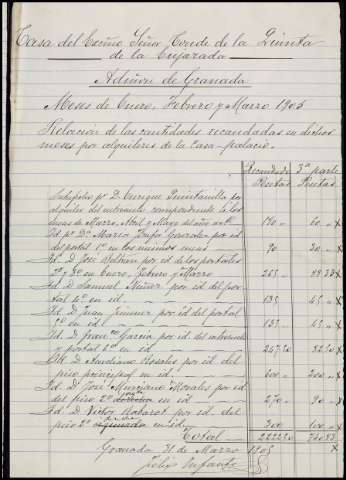 Casa del Exmo Señor Conde de la Quinta
de la Enjarada
Admón de Granada
Meses de Enero, Febrero y Marzo 1905
Relación de las cantidades recaudadas en dichos
meses por alquileres de la Casa-palacio.
Recaudado 3ª parte
Pesetas Pesetas
D. Enrique Quintanilla por
alquiler del entresuelo correspondiente a los
meses de Marzo, Abril y Mayo del año 60 "
Id. pr. Dª María Gonzalez por id.
del portal 1º en los mismos meses 90 " 30 "
Id. D. José Beltrán por id. de los portales
2º y 3º en Enero, Febrero y Marzo 265 " 88 33
Id. D. Samuel por id. del por
tal 4º en id. 135 " 45 "
Id. D. Juan Jimenez por id. del portal
en id. 135 " 45 "
Id. D. Franco Garcia por id. del entresuelo
y portal en id. 247 50 82 50
Id. D. Aureliano Rosales por id. del
piso principal en id. 600 " 200 "
Id. D. José Morales por id.
del piso 2º en id. 270 " 90 "
Id. D. Victor por id. del
piso 2º en id. 300 100 "
Total 2222 50
Granada 31 de Marzo 1905
Julio Infante